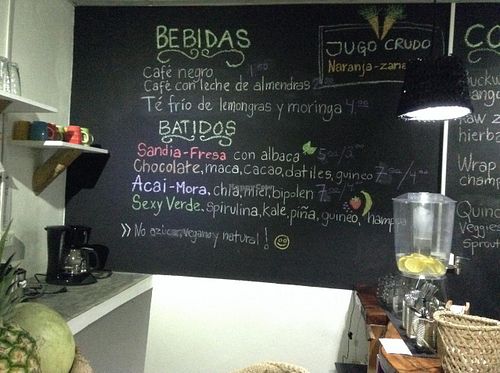 BEBIDAS
Café negro 1.50
Café con leche de almendras
Té frío de lemongras y moringa 4.00
BATIDOS
Sandia-Fresa con albaca 5.00/3.00
Chocolate, maca, cacao, datiles, guineo 7.00/4.00
Acai-Mora. chia, miel, bipolen 7.00/4.00
Sexy Verde. Spirulina, kale, piña, guineo,
>> No azucar, vegano y natural!
JUGO CRUDO
Naranja-zana
CO
Wrap
champ
Quino
Veggies
Sprout